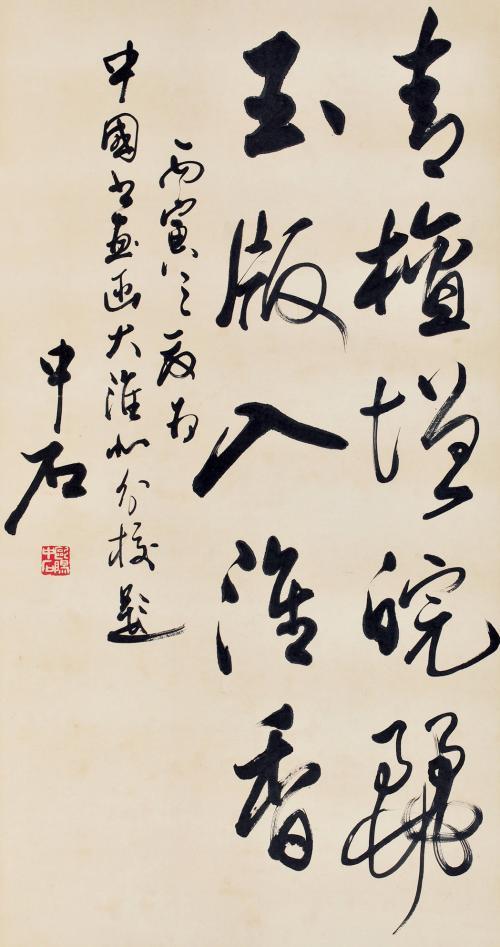 青檀增皖麗
玉版入淮香
丙寅之夏為
中國書畫函大淮北分校題
中石
歐陽中石